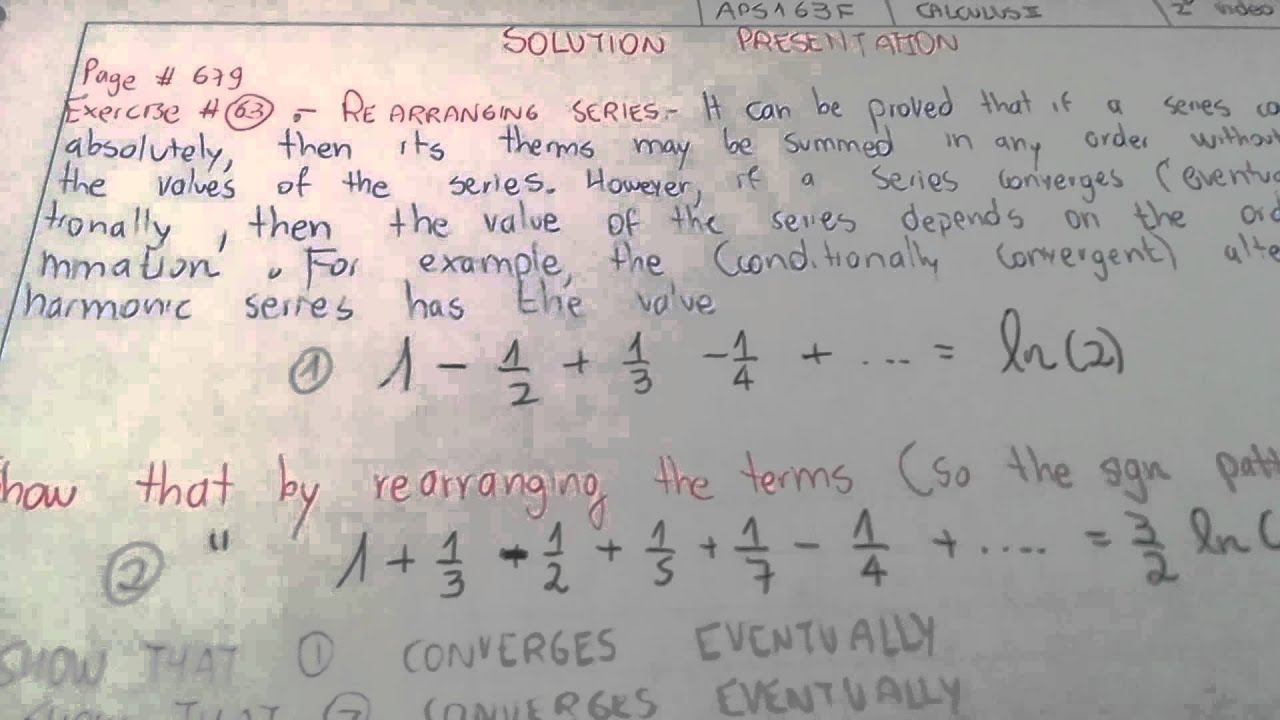 APS163F CALCULUS II 2° video
SOLUTION PRESENTATION
Page # 679
Exercise # 63 .- REARRANGING SERIES.- It can be proved that if a series co
absolutely, then its therms may be summed in any order without
the values of the series. However, if a series converges (eventua
tionally, then the value of the series depends on the ord
mmation. For example, the (conditionally convergent) alte
harmonic series has the value
① 1 - 1/2 + 1/3 - 1/4 + .... = ln(2)
how that by rearranging the terms (so the sgn patt
② " 1 + 1/3 - 1/2 + 1/5 + 1/7 - 1/4 + ..... = 3/2 ln(
SHOW THAT ① CONVERGES EVENTUALLY
SHOW THAT ② CONVERGES EVENTUALLY